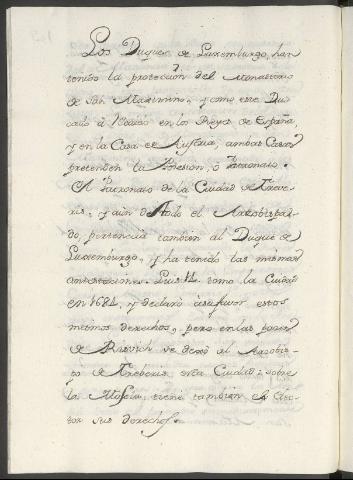 Los Duques de Luxemburgo, han
tenido la proteccion del Monasterio
de San Maximino, y como este Du-
cado à recaido en los Reyes de España,
y en la Casa de Austria, ambas Casas
pretenden la Posesion, ò Patronato.
El Patronato de la Ciudad de Treve-
ris, y aun de todo el Arzobispa-
do, pertenecia tambien al Duque de
Luxemburgo, y ha tenido las mismas
contestaciones. Luis 14 tomo la Ciudad
en 1684, y declarò à su favor estos
mismos derechos, pero en las paces
de Riswich se dexò al Arzobis-
po de Treberis, esta Ciudad; sobre
la Mosela, tiene tambien el Elec-
tor sus derechos.